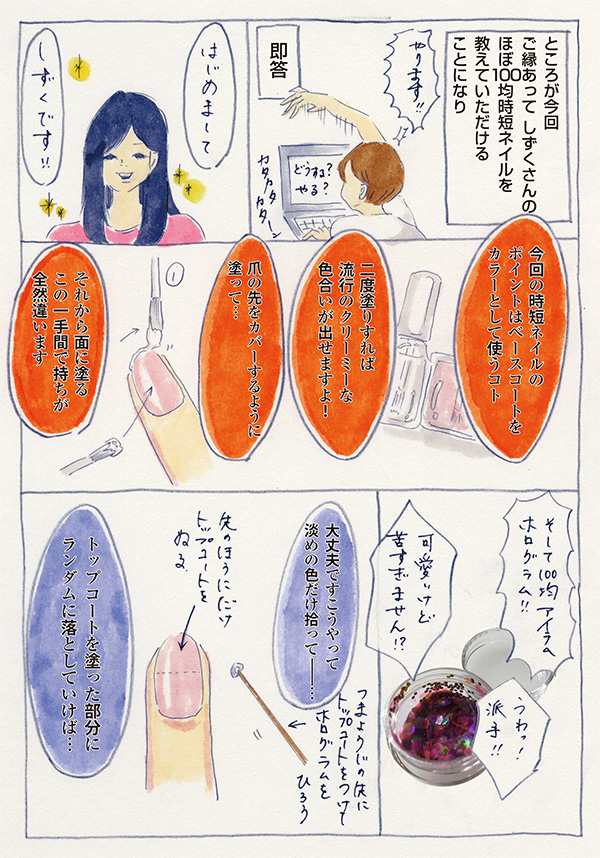 ところが今回
ご縁あって しずくさんの
ほぼ100均時短ネイルを
教えていただける
ことになり
やります!!
即答
どうすね?
やる?
カタカタ
カタカターン
はじめまして
しずくです!!
今回の時短ネイルの
ポイントはベースコートを
カラーとして使うコト
二度塗りすれば
流行のクリーミーな
色合いが出せますよ!
爪の先をカバーするように
塗って…
①
それから面に塗る
この一手間で持ちが
全然違います
そして100均アイテム
ホログラム!!
うわっ!
派手!!
可愛いけど
若すぎません!?
大丈夫ですこうやって
淡めの色だけ拾って――…
つまようじの先に
トップコートをつけて
ホログラムを
ひろう
先のほうにだけ
トップコートを
ぬる
トップコートを塗った部分に
ランダムに落としていけば…